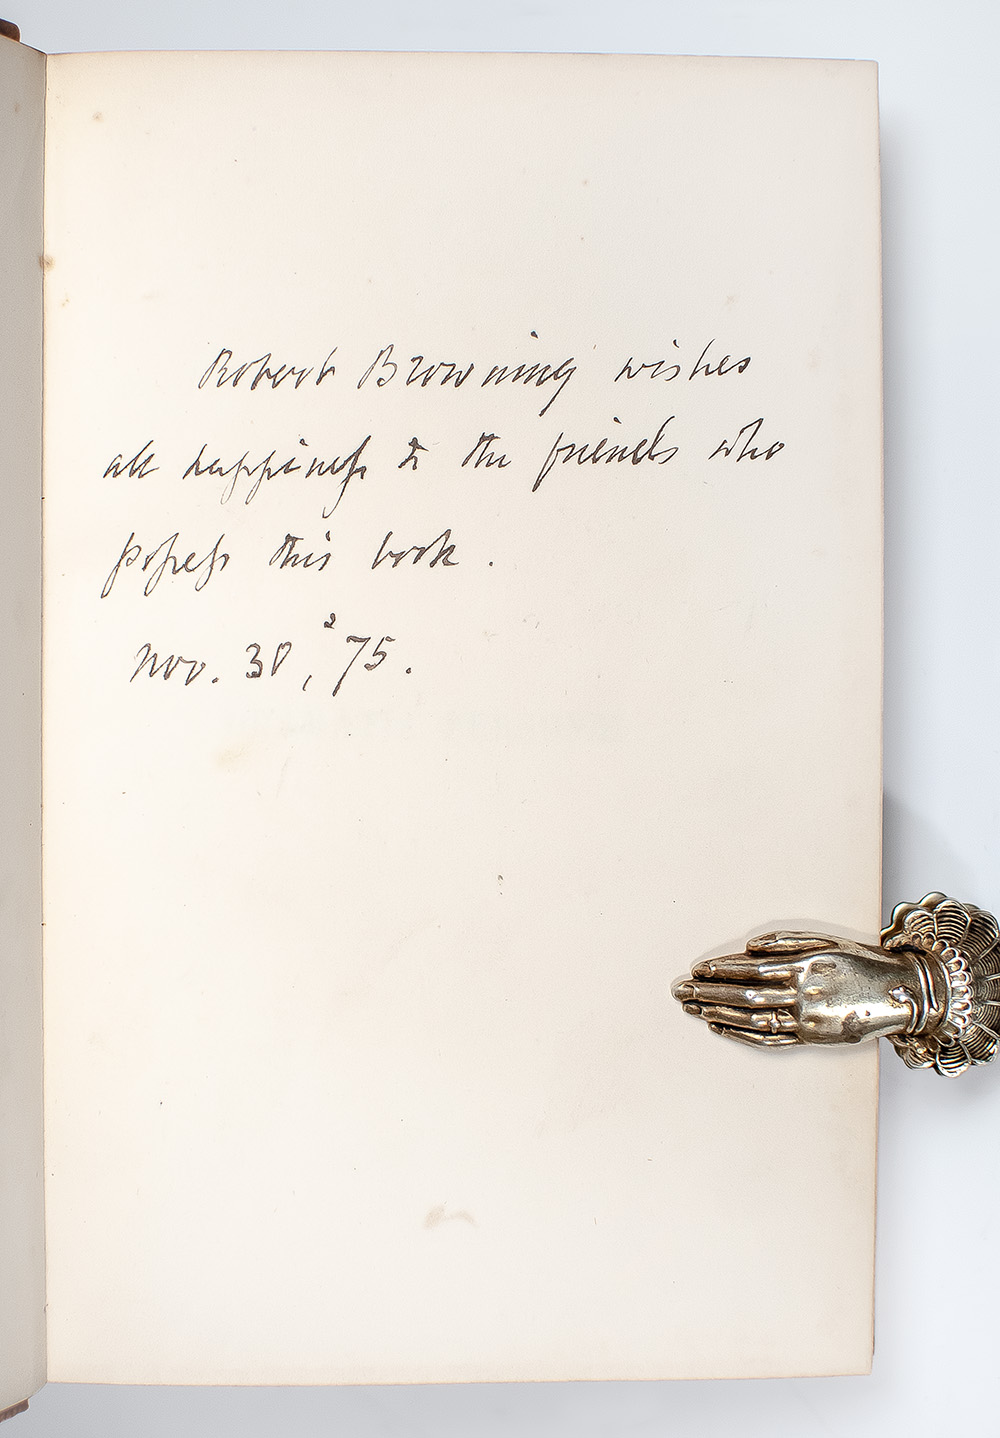 Robert Browning wishes
all happiness to the friends who
possess this book.
Nov. 30, '75.